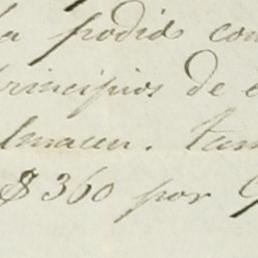 a podido con
rincipios de e
lmacen. tam
$360 por 9